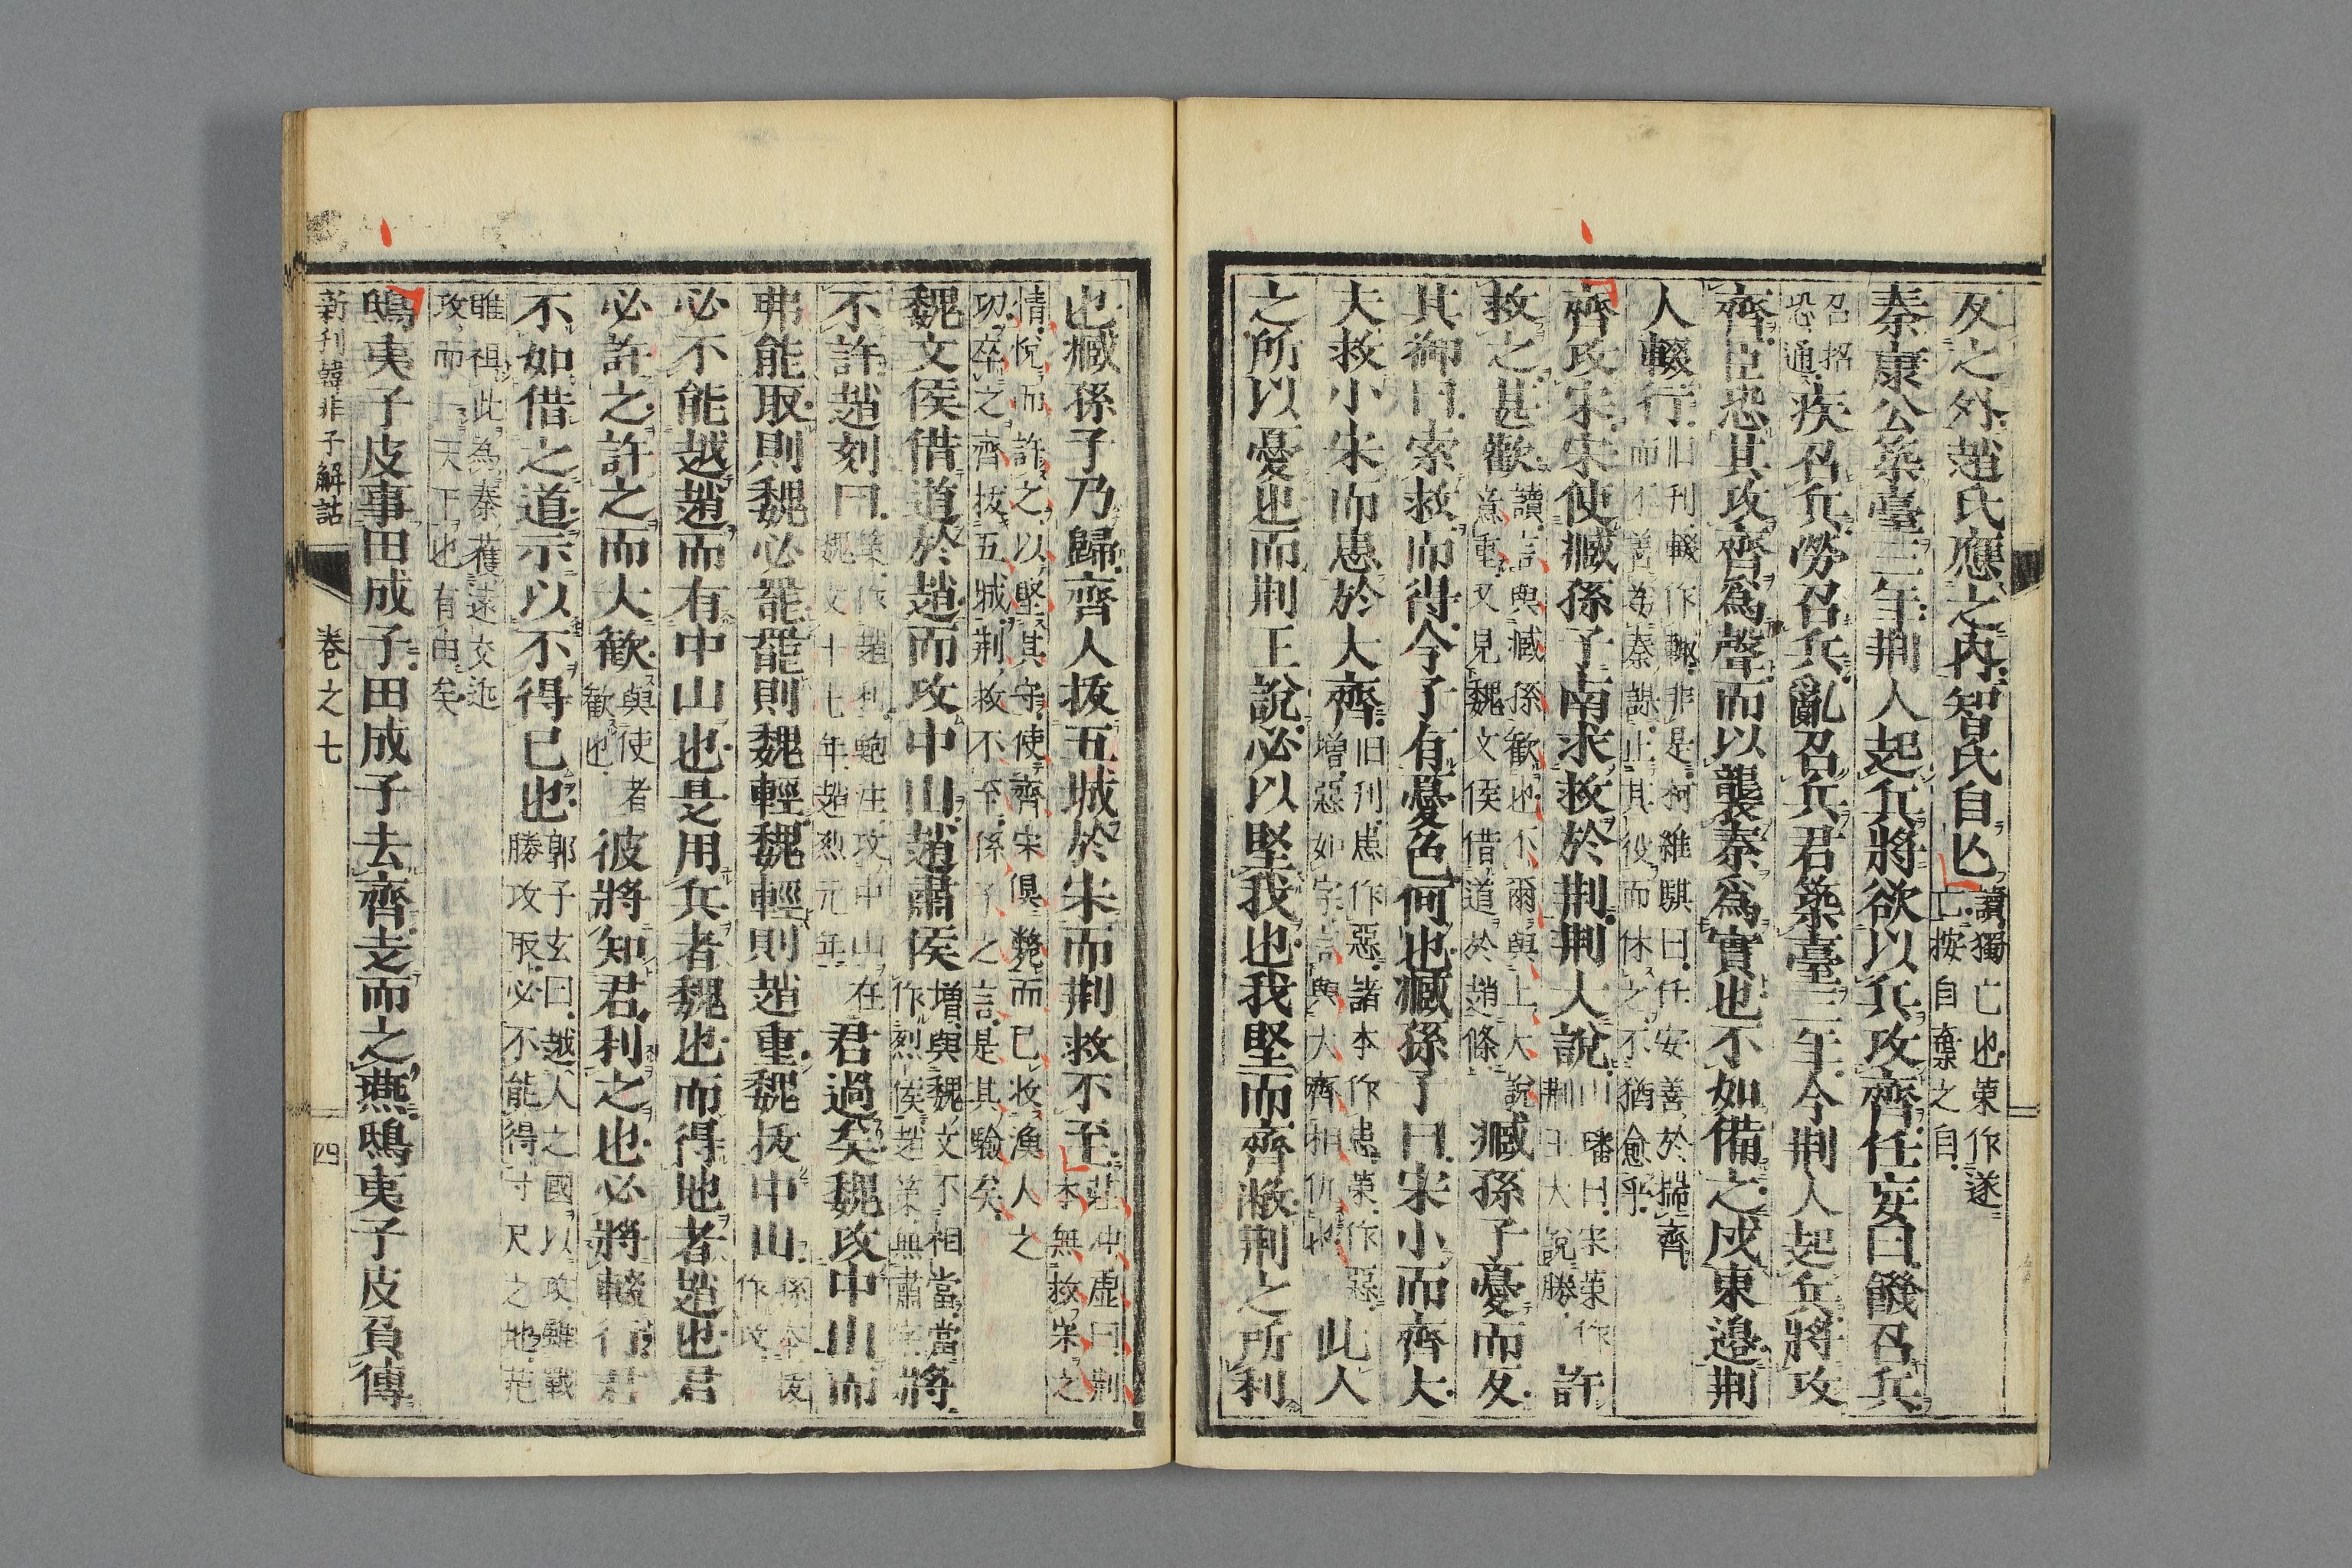 反之外趙氏應之内智氏自亾讀獨亡也策作遂亡按自棄之自
秦康公築臺三年荆人起兵將欲以兵攻齊任妄曰饑召兵
召招恐通疾召兵勞召兵亂召兵君築臺三年今荆人起兵將攻
齊臣恐其攻齊爲聲而以襲秦爲實也不如備之戍東邉荆
人輟行旧刊輟作輙非是柯維騏曰任安善於揣齊而不善為秦謀止其役而休之不猶愈乎
齊攻宋宋使臧孫子南求救於荆荆大說山璠曰宋策作荆王大說勝許
救之甚歡讀言與臧孫歓也不爾與上大說意重又見魏文侯借道於趙條臧孫子憂而反
其御曰索救而得今子有憂色何也臧孫子曰宋小而齊大
夫救小宋而患於大齊旧刊患作惡諸本作患策作惡増惡如字言與大齊相仇也此人
之所以憂也而荆王說必以堅我也我堅而齊敝荆之所利
也臧孫子乃歸齊人抜五城於宋而荆救不至荘冲虚曰荆本無救宋之
情悅而許之以堅其守使齊宋俱斃而已收漁人之功卒之齊抜五城荆救不至係子之言是其驗矣
魏文侯借道於趙而攻中山趙肅侯増與魏文不相當當作烈侯趙策無肅字將
不許趙刻曰策作趙利鮑注攻中山在魏文十七年趙烈元年君過矣魏攻中山而
弗能取則魏必罷罷則魏輕魏輕則趙重魏抜中山孫本抜作攻
必不能越趙而有中山也是用兵者魏也而得地者趙也君
必許之許之而大歓與使者歓也彼將知君利之也必將輟行君
不如借之道示以不得已也郭子玄曰越人之國以攻雖戰勝攻取必不能得寸尺之地范
雎祖此為秦獲遠交近攻而上天下也有由矣
鴟夷子皮事田成子田成子去齊走而之燕鴟夷子皮負傳
新刊韓非子解詁 卷之七 四